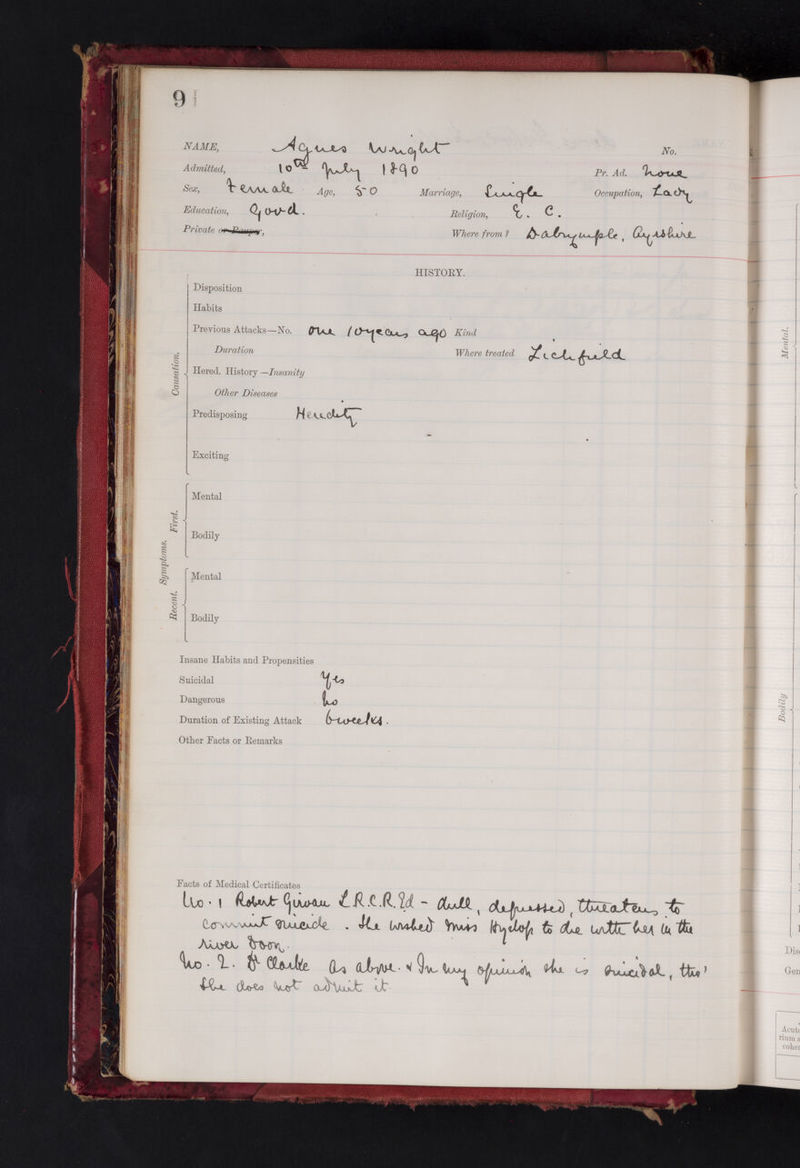 9
NAME, Agnes Wright No.
Admitted, 10th July 1890 Pr. Ad. none
Sex, Female Age, 50 Marriage, Single Occupation, Lady
Education, Good. Religion, E. C.
Private or Pauper, Where from? Dalrymple, Ayrshire
HISTORY.
Causation,
Disposition
Habits
Previous Attacks—No. one 10 years ago Kind
Duration Where treated Lichfield
Hered. History—Insanity
Other Diseases
Predisposing Heredity
Exciting
Symptoms,
First.
Mental
Bodily
Recent.
Mental
Bodily
Insane Habits and Propensities
Suicidal Yes
Dangerous No
Duration of Existing Attack 6 weeks.
Other Facts or Remarks
Facts of Medical Certificates
No. 1 Robert Girvan L.R.C.P.Ed - dull, depressed, threatens to
commit suicide. She wished Miss Hyslop to die with her in the
river Doon.
No. 2. Dr Clarke As above. & In my opinion she is suicidal, tho'
she does not admit it
Mental.
Bodily
Dis
Gen
Acut
rium a
coher